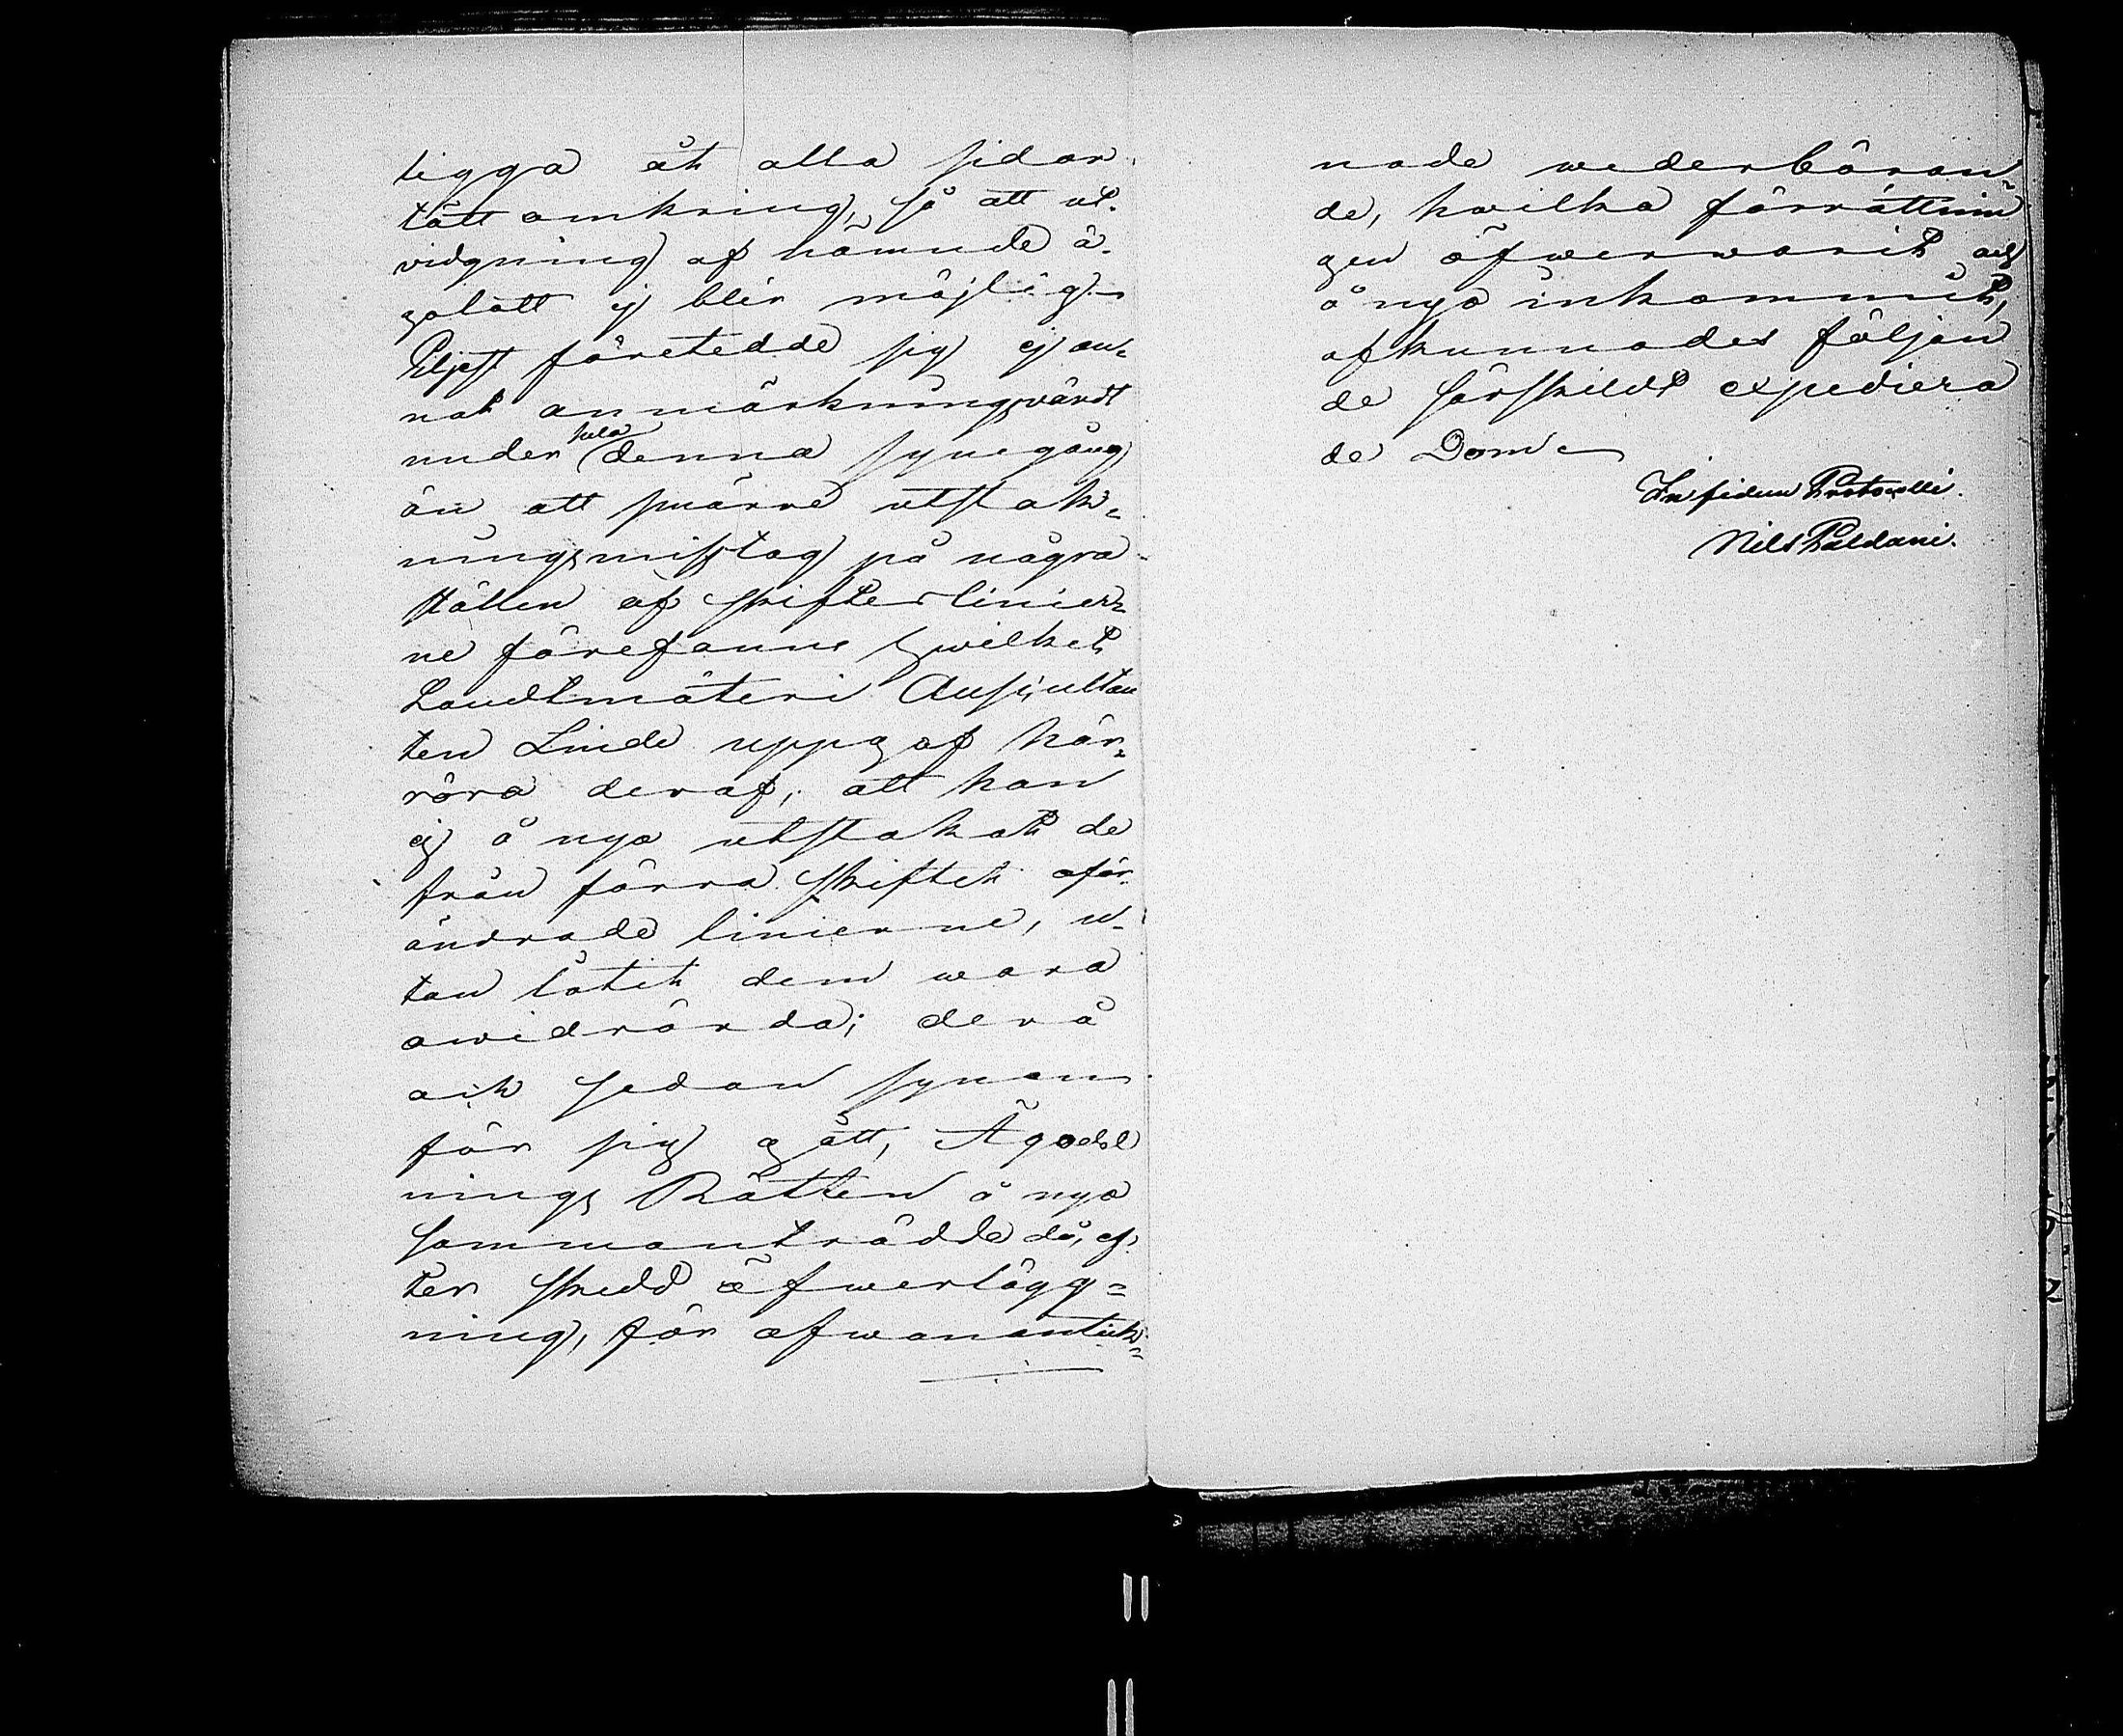 ligga åt alla sidor
tätt omkring, så att ut-
vidgning af nämnde ä-
golått ej blir möjlig.
Eljest företedde sig ej an-
nat anmärkningsvärdt
under hela denna synegång
än att smärre utstak-
ningsmisstag på några
ställen af skifteslinier-
ne förefanns hwilket
Landtmäteri Auscultan
ten Linde uppgaf här-
röra deraf, att han
ej å nyo utstakat de
från förra skiftet oför-
ändrade linierne, u-
tan låtit dem wara
owidrörda; derå
och sedan synen
för sig gått, Ägodel
nings Rätten å nyo
sammanträdde då, ef-
ter skedd öfwerlägg-
ning, för ofwanantek-
nade wederböran-
de, hwilka förrättnin
gen öfwerwarit och
å nyo inkommit,
afkunnades följan
de särskildt expediera
de Dom
In fidem Protocolli.
Nils Paldani.